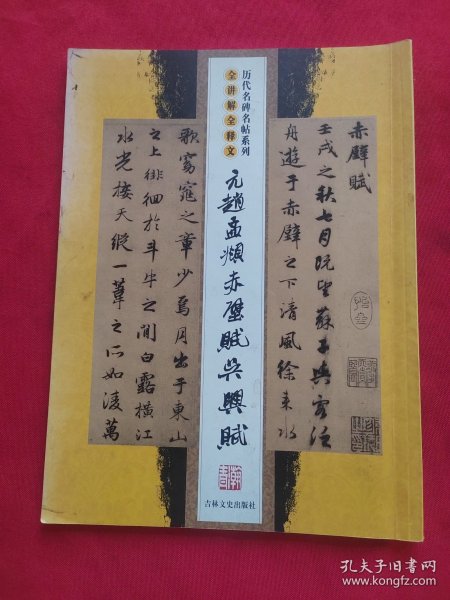 赤壁賦
壬戌之秋七月既望蘇子與客泛
舟遊于赤壁之下清風徐来水
历代名碑名帖系列
全讲解全释文
元趙孟頫赤壁賦吴興賦
吉林文史出版社
歌窈窕之章少焉月出于東山
之上徘徊於斗牛之間白露横江
水光接天縱一葦之所如凌萬
孔夫子旧书网
www.kongfz.com